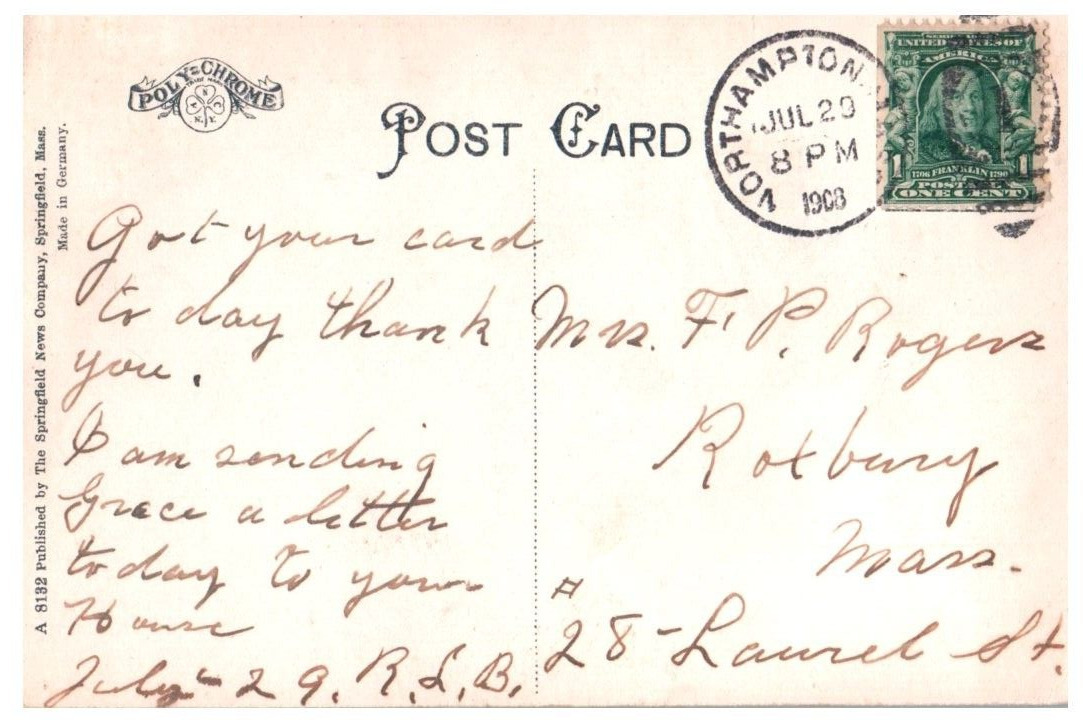 POLY-CHROME
TRADE MARK
A N C
N.Y.
POST CARD
NORTHAMPTON
JUL 29
8 PM
1908
SERIES 1902
UNITED STATES OF
AMERICA
1 1
1706 FRANKLIN 1790
POSTAGE
ONE CENT
A 8132 Published by The Springfield News Company, Springfield, Mass.
Made in Germany.
Got your card
to day thank
you.
I am sending
Grace a letter
today to your
House
July - 29. R. L. B.
Mrs. F. P. Rogers
Roxbury
Mass.
# 28 - Laurel St.